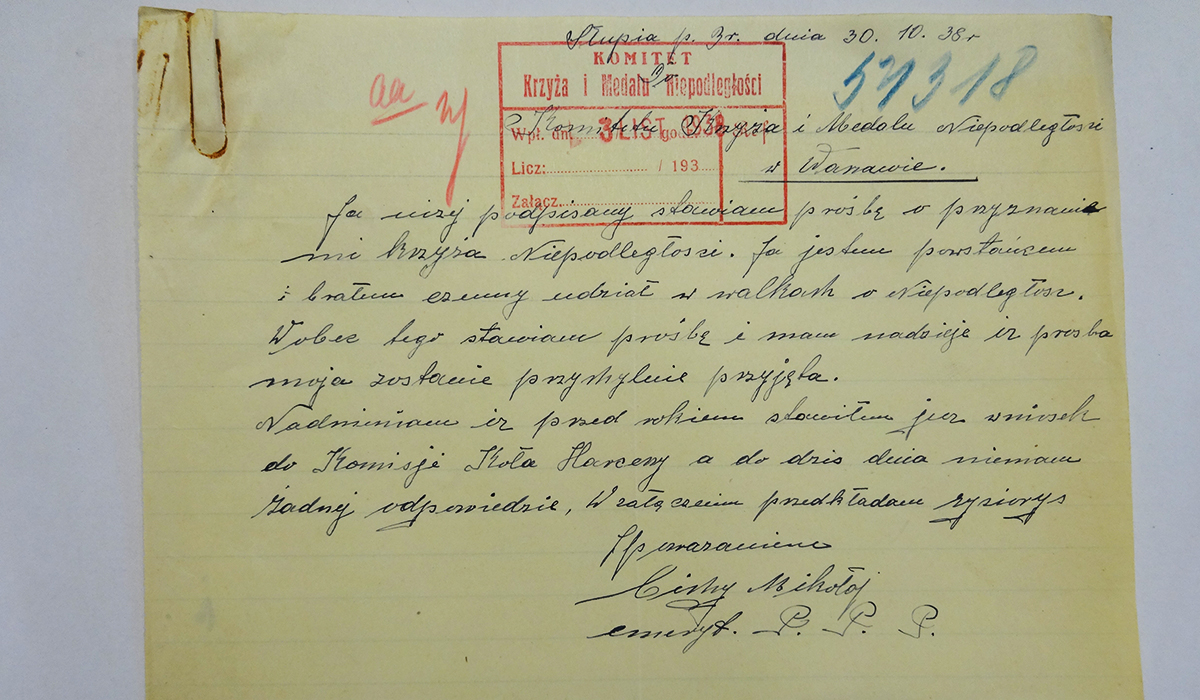 Słupia p. Br. dnia 30. 10. 38 r
KOMITET
Krzyża i Medalu Niepodległości
57318
aa
Komitetu Krzyża i Medalu Niepodległosci
Wpł. dn. 3 LIST 1938 godz.
w Warszawie.
Licz: / 193
Załącz.
Ja niżej podpisany stawiam prośbę o przyznanie
mi krzyża Niepodległosci. Ja jestem powstańcem
i brałem czenny udział w walkach o Niepodległosc.
Wobec tego stawiam prośbę i mam nadzieje iz prosba
moja zostanie przychylnie przyjęta.
Nadmieniam iz przed rokiem stawiłem juz wniosek
do Komisje Koła Harcerzy a do dzis dnia niemam
żadnej odpowiedzie, W załączeniu przedkładam życiorys
Z powazaniem
Cichy Mikołaj
emeryt. P. P. P.